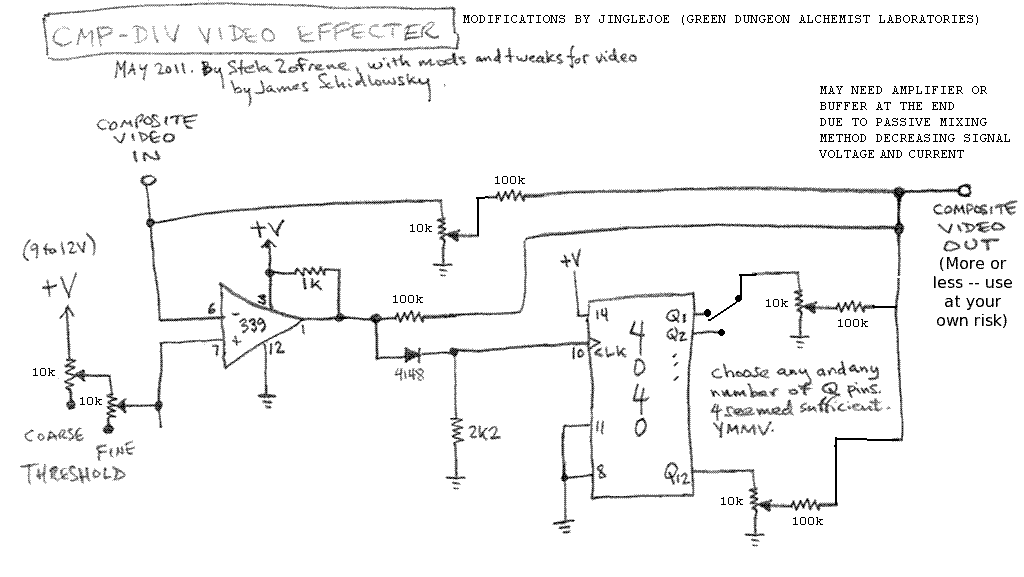 CMP-DIV VIDEO EFFECTER
MODIFICATIONS BY JINGLEJOE (GREEN DUNGEON ALCHEMIST LABORATORIES)
MAY 2011. By Stela Zofrene, with mods and tweaks for video
by James Schidlowsky.
MAY NEED AMPLIFIER OR
BUFFER AT THE END
DUE TO PASSIVE MIXING
METHOD DECREASING SIGNAL
VOLTAGE AND CURRENT
COMPOSITE
VIDEO
IN
100k
10k
COMPOSITE
VIDEO
OUT
(More or
less -- use
at your
own risk)
(9 to 12V)
+V
+V
1K
3
6
-
339
+
7
12
1
100k
4148
2K2
10k
10k
COARSE
FINE
THRESHOLD
+V
14
10
CLK
4
0
4
0
11
8
Q1
Q2
Q12
10k
100k
Choose any and any
number of Q pins.
4 seemed sufficient.
YMMV.
10k
100k